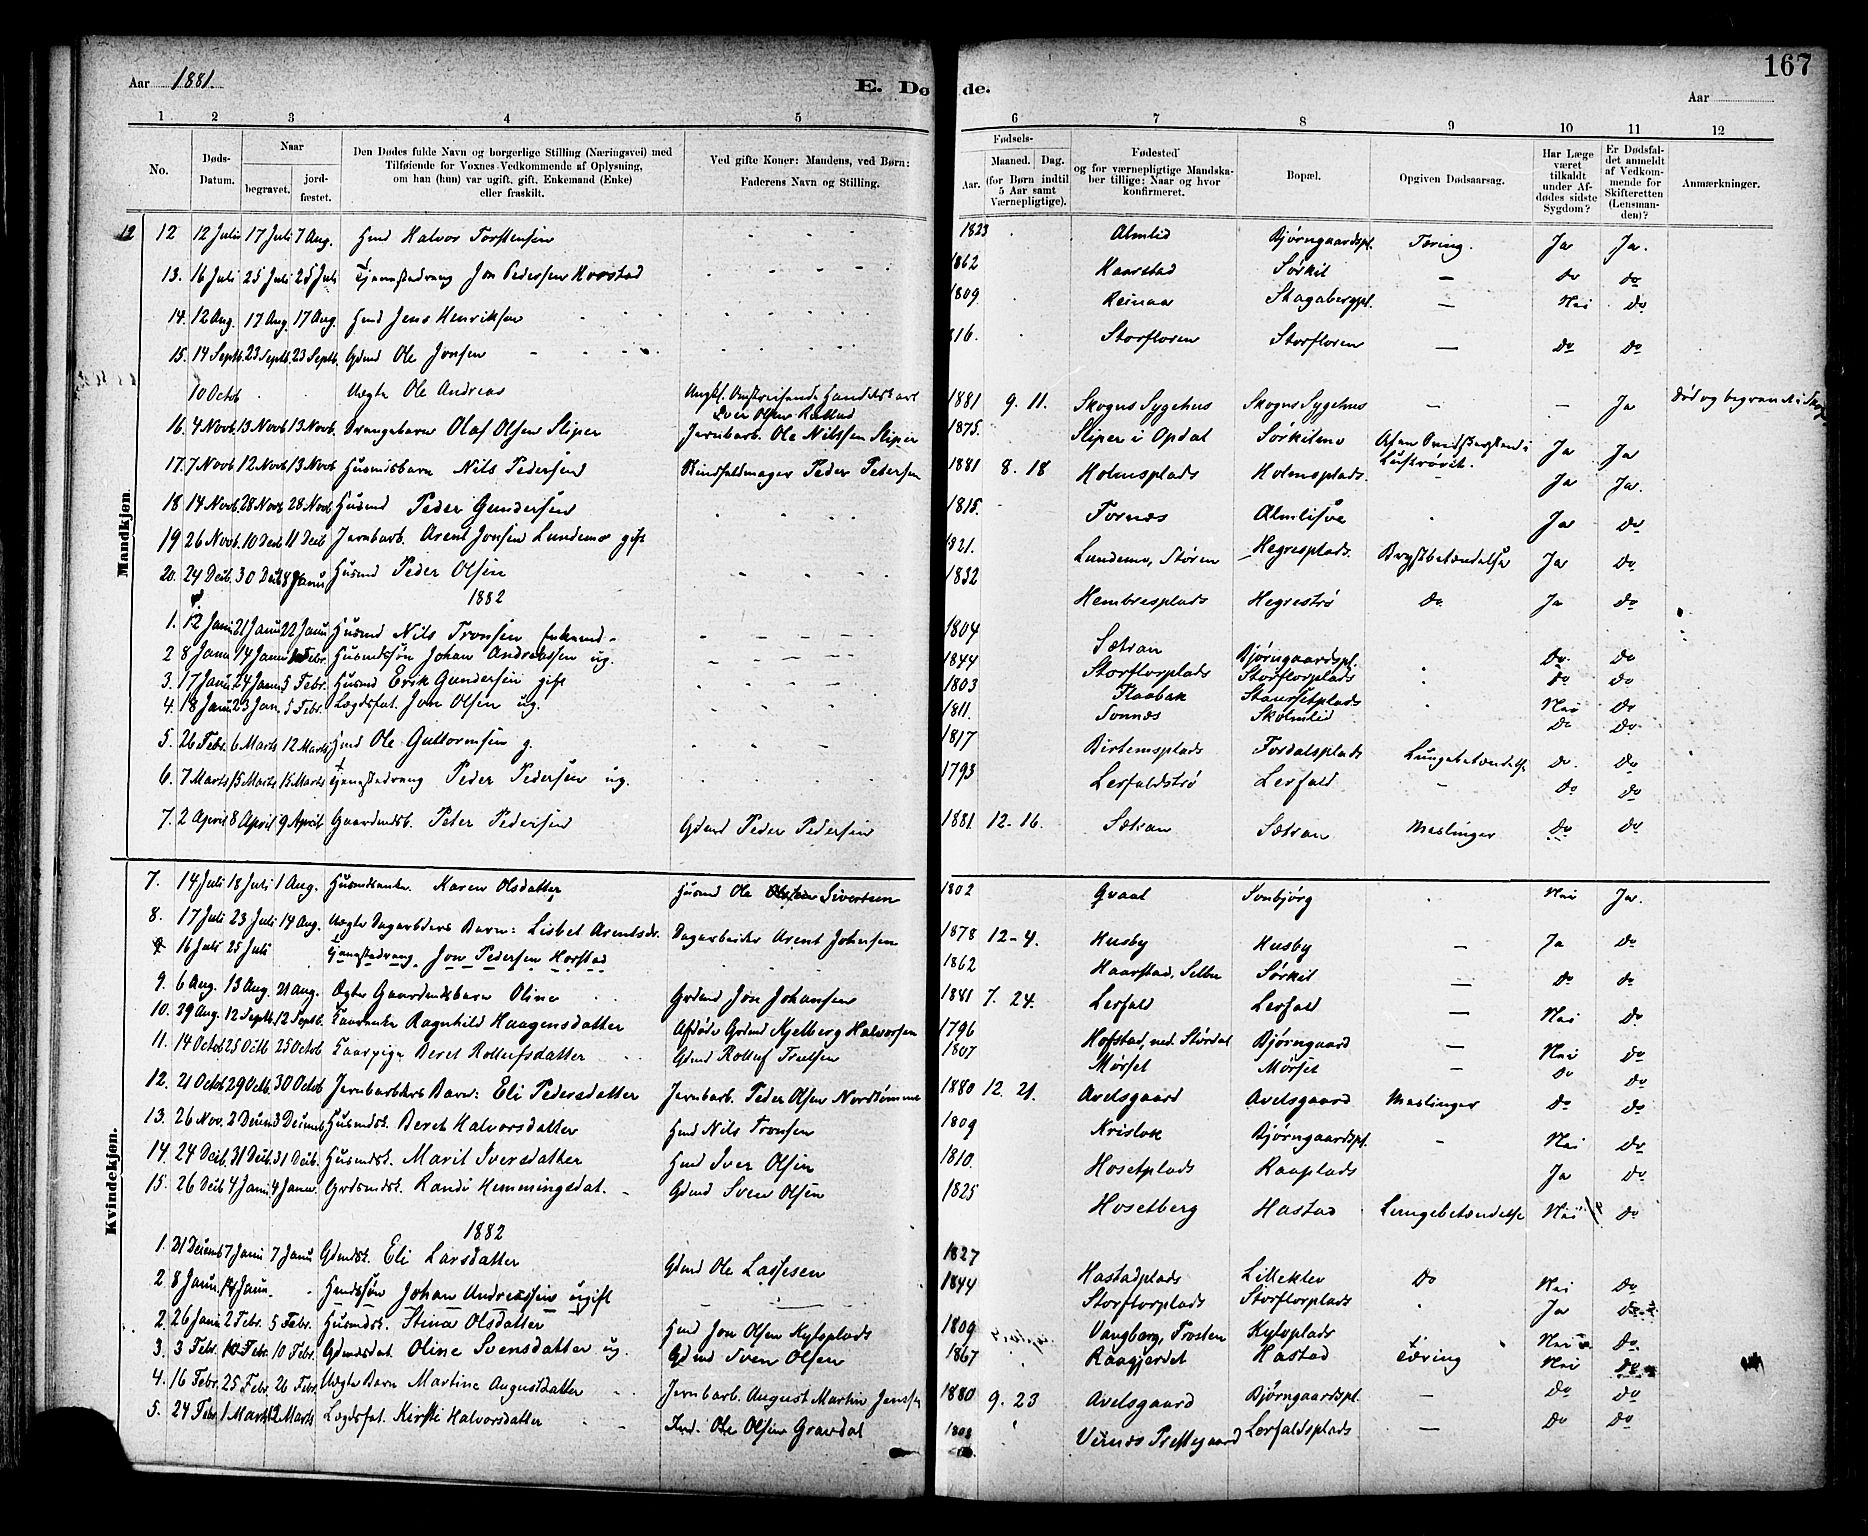 167
Aar 1881.
E. Dø de.
Aar
1 2 3 4 5 6 7 8 9 10 11 12
No.
Døds-Datum.
Naar
begravet.
jord-fæstet.
Den Dødes fulde Navn og borgerlige Stilling (Næringsvei) med
Tilføiende for Voxnes Vedkommende af Oplysning,
om han (hun) var ugift, gift, Enkemand (Enke)
eller fraskilt.
Ved gifte Koner: Mandens, ved Børn:
Faderens Navn og Stilling.
Fødsels-
Aar.
Maaned. Dag.
(for Børn indtil
5 Aar samt
Værnepligtige).
Fødested
og for værnepligtige Mandska-
ber tillige: Naar og hvor
konfirmeret.
Bopæl.
Opgiven Dødsaarsag.
Har Læge
været
tilkaldt
under Af-
dødes sidste
Sygdom?
Er Dødsfal-
det anmeldt
af Vedkom-
mende for
Skifteretten
(Lensman-
den)?
Anmærkninger.
Mandkjøn.
12 12 12 Juli 17 Juli 7 Aug. Hmd Halvor Torstensen 1823 Almlid Bjørngaardspl. Tæring. Ja Ja.
13. 16 Juli 25 Juli 25 Juli Tjenestedreng Jon Pedersen Horstad 1862 Haarstad Sørkil — do do
14. 12 Aug. 17 Aug. 17 Aug. Hmd Jens Henriksen 1809 Reinaa Skagabergpl. — Nei do
15. 14 Septb. 23 Septb. 23 Septb. Gdmd Ole Jonsen 816. Storfloren Storfloren — do do
10 Octob Uægte Ole Andreas Ungkl. Omreisende Handelskarl Iver Olsen 1881 9. 11. Skogns Sygehus Skogns Sygehus — — Ja Død og begravet i
16. 4 Novb. 13 Novb. 13 Novb. Drengebarn Olaf Olsen Sliper Jernbarb. Ole Nilssen Sliper 1875. Sliper i Opdal Sørkilmo Ja Ja
17. 7 Novb 12 Novb 13 Novb Husmdsbarn Nils Pedersen Peder Petersen 1881 8. 18 Holmsplads Holmsplads. Ja Ja.
18 14 Novb. 28 Novb. 28 Novb Husmd Peder Gundersen 1815. Fornæs Almlisve Ja do
19 26 Novb. 10 Decb 11 Decb Jernbarb. Arent Jonsen Lundemo gift 1821. Lundemo, Støren Hegresplads. Brystbetændelse Ja do
20. 24 Decb. 30 Decb 8 Janu Husmd Peder Olsen 1832 Hembresplads Hegrestrø do Ja do
1882
1. 12 Janu 21 Janu 22 Janu Husmd Nils Tronsen Enkemd. 1804 Sætran Bjørngaardspl. do. do
2 8 Janu 14 Janu Febr. Husmdssøn Johan Andreassen ug. 1844 Storflorplads Storflorplads do do
3. 17 Janu 24 Janu 5 Febr. Husmd Erik Gundersen gift 1803 Flaabak Staursetplads Nei do
4. 18 Janu 23 Jan. 5 Febr. Lægdsfat. Jon Olsen ug. 1811. Sonnæs Skolmlid do do
5. 26 Febr. 6 Marts 12 Marts Hmd Ole Guttormsen g. 1817 Birtemsplads Fordalsplads Lungebetændelse do. do
6. 7 Marts 15 Marts 15 Marts Tjenestedreng Peder Pedersen ug. 1793 Lerfaldstrø Lerfald — do do
7. 2 April 8 April 9 April Gaardmdsb. Peter Pedersen Gdmd Peder Pedersen 1881 12. 16. Sætran Sætran Meslinger do do
Kvindekjøn.
7. 14 Juli 18 Juli 1 Aug. Husmdsenke. Karen Olsdatter Husmd Ole Sivertsen 1802 Graat Sonbjørg Nei Ja.
8. 17 Juli 23 Juli 14 Aug. Uægte Dagarbders Barn: Lisbet Arentsdr. Dagarbeider Arent Johnsen 1878 12-4. Husby Husby — Ja do
16 Juli 25 Juli Tjenestedreng Jon Pedersen Horstad 1862 Haarstad, Selbu Sørkil — do do
9. 6 Aug. 13 Aug. 21 Aug. Ægte Gaardmdsbarn Oline Grdmd Jon Johansen 1841 7. 24. Lerfald Lerfald — Nei do
10. 29 Aug. 12 Septb. 12 Septb. Ragnhild Haagensdatter Afdøde Grdmd Kjelberg Halvorsen 1796 Hofstad, ned. Størdal Bjørngaard — Nei do
11. 14 Octob 25 Octb 25 Octob Beret Rollufsdatter Gdmd Rolluf Trulsen 1807 Mørset Mørset — do do
12. 21 Octob 29 Octb. 30 Octob Jernbarbders Barn: Eli Pedersdatter Jernbarb. Peder Olsen Nordtømme 1880 12. 21. Avelsgaard Avelsgaard Meslinger do do
13. 26 Nov. 2 Decemb 3 Decemb Husmdsk. Beret Halvorsdatter Hmd Nils Tronsen 1809 Krislok Bjørngaardspl. — Nei do
14. 24 Decb. 31 Decb. 31 Decb. Husmdsk. Marit Iversdatter Hmd Iver Olsen 1810. Hosetplads Raaplads Ja do
15. 26 Decb 4 Janu 4 Janu. Grdsmdsk. Randi Hemmingsdat. Gdmd Sven Olsen 1825 Hosetberg Hastad Lungebetændelse Nei do
1882
1. 31 Decemb 7 Janu 7 Janu Gdmdsk. Eli Larsdatter Gdmd Ole Lassesen 1827 Hastadplads Lilleklev do Nei do
2 8 Janu. 14 Janu. Hmdssøn Johan Andreassen ugift 1844 Storflorplads Storflorplads Ja do
2. 26 Janu 2 Febr. 5 Febr. Husmdsk. Stina Olsdatter Hmd Jon Olsen Kyloplads 1809 Vangberg, Frosten Kyloplads Nei do
3. 3 Febr. 10 Febr. 10 Febr. Gdmdsdat. Oline Svensdatter ug. Gdmd Sven Olsen 1867 Raagjerdet Hastad Tæring Nei do
4. 16 Febr. 25 Febr. 26 Febr. Uægte Barn Martine Augustdatter Jernbarb. August Martin Jenssen 1880 9. 23 Avelsgaard Bjørngaardspl. — do do
5. 24 Febr 1 Marts 12 Marts Lægdsfat. Kirsti Halvorsdatter Ind. Ole Olsen Gravdal 1808 Værnes Prestegaard Lerfaldsplads — do do